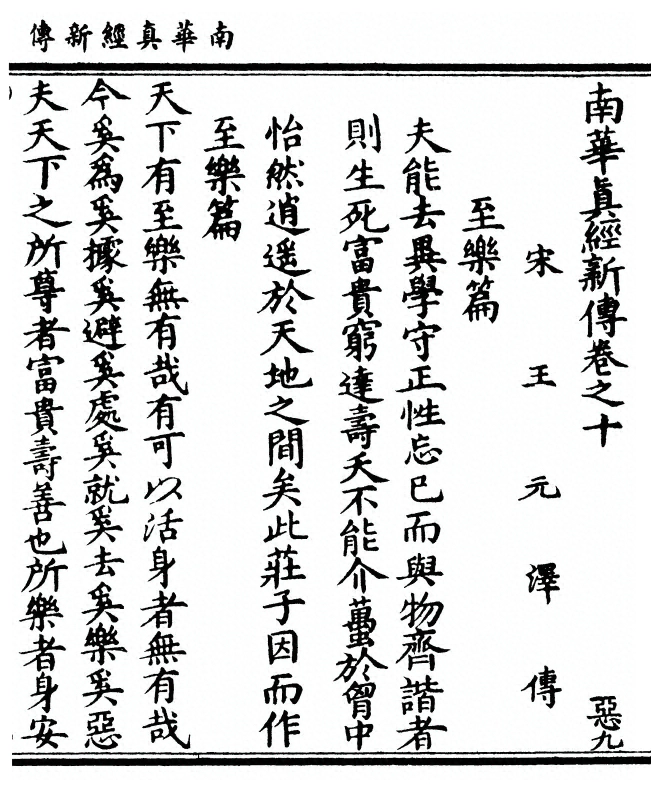 南華真經新傳
南華眞經新傳卷之十
惡九
宋王元澤傳
至樂篇
夫能去異學守正性忘已而與物齊諧者
則生死富貴窮達壽夭不能介蠆於胷中
怡然逍遥於天地之間矣此莊子因而作
至樂篇
天下有至樂無有哉有可以活身者無有哉
今奚爲奚據奚避奚處奚就奚去奚樂奚惡
夫天下之所尊者富貴壽善也所樂者身安